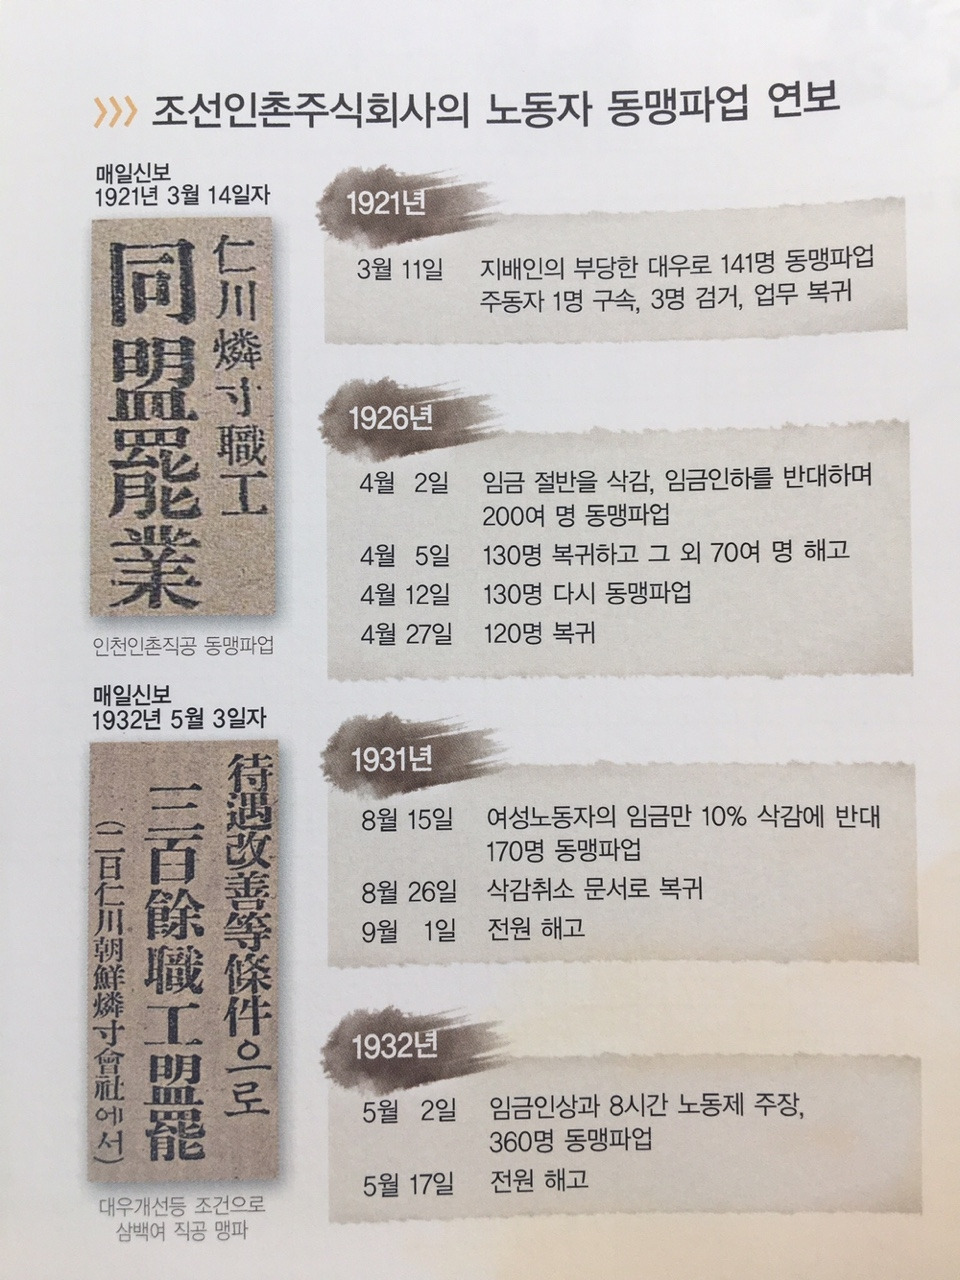 조선인촌주식회사의 노동자 동맹파업 연보
매일신보
1921년 3월 14일자
仁川燐寸職工
同盟罷業
인천인촌직공 동맹파업
매일신보
1932년 5월 3일자
待遇改善等條件으로
三百餘職工盟罷
(二日仁川朝鮮燐寸會社에서)
대우개선등 조건으로
삼백여 직공 맹파
1921년
3월 11일 지배인의 부당한 대우로 141명 동맹파업
주동자 1명 구속, 3명 검거, 업무 복귀
1926년
4월 2일 임금 절반을 삭감, 임금인하를 반대하며
200여 명 동맹파업
4월 5일 130명 복귀하고 그 외 70여 명 해고
4월 12일 130명 다시 동맹파업
4월 27일 120명 복귀
1931년
8월 15일 여성노동자의 임금만 10% 삭감에 반대
170명 동맹파업
8월 26일 삭감취소 문서로 복귀
9월 1일 전원 해고
1932년
5월 2일 임금인상과 8시간 노동제 주장,
360명 동맹파업
5월 17일 전원 해고